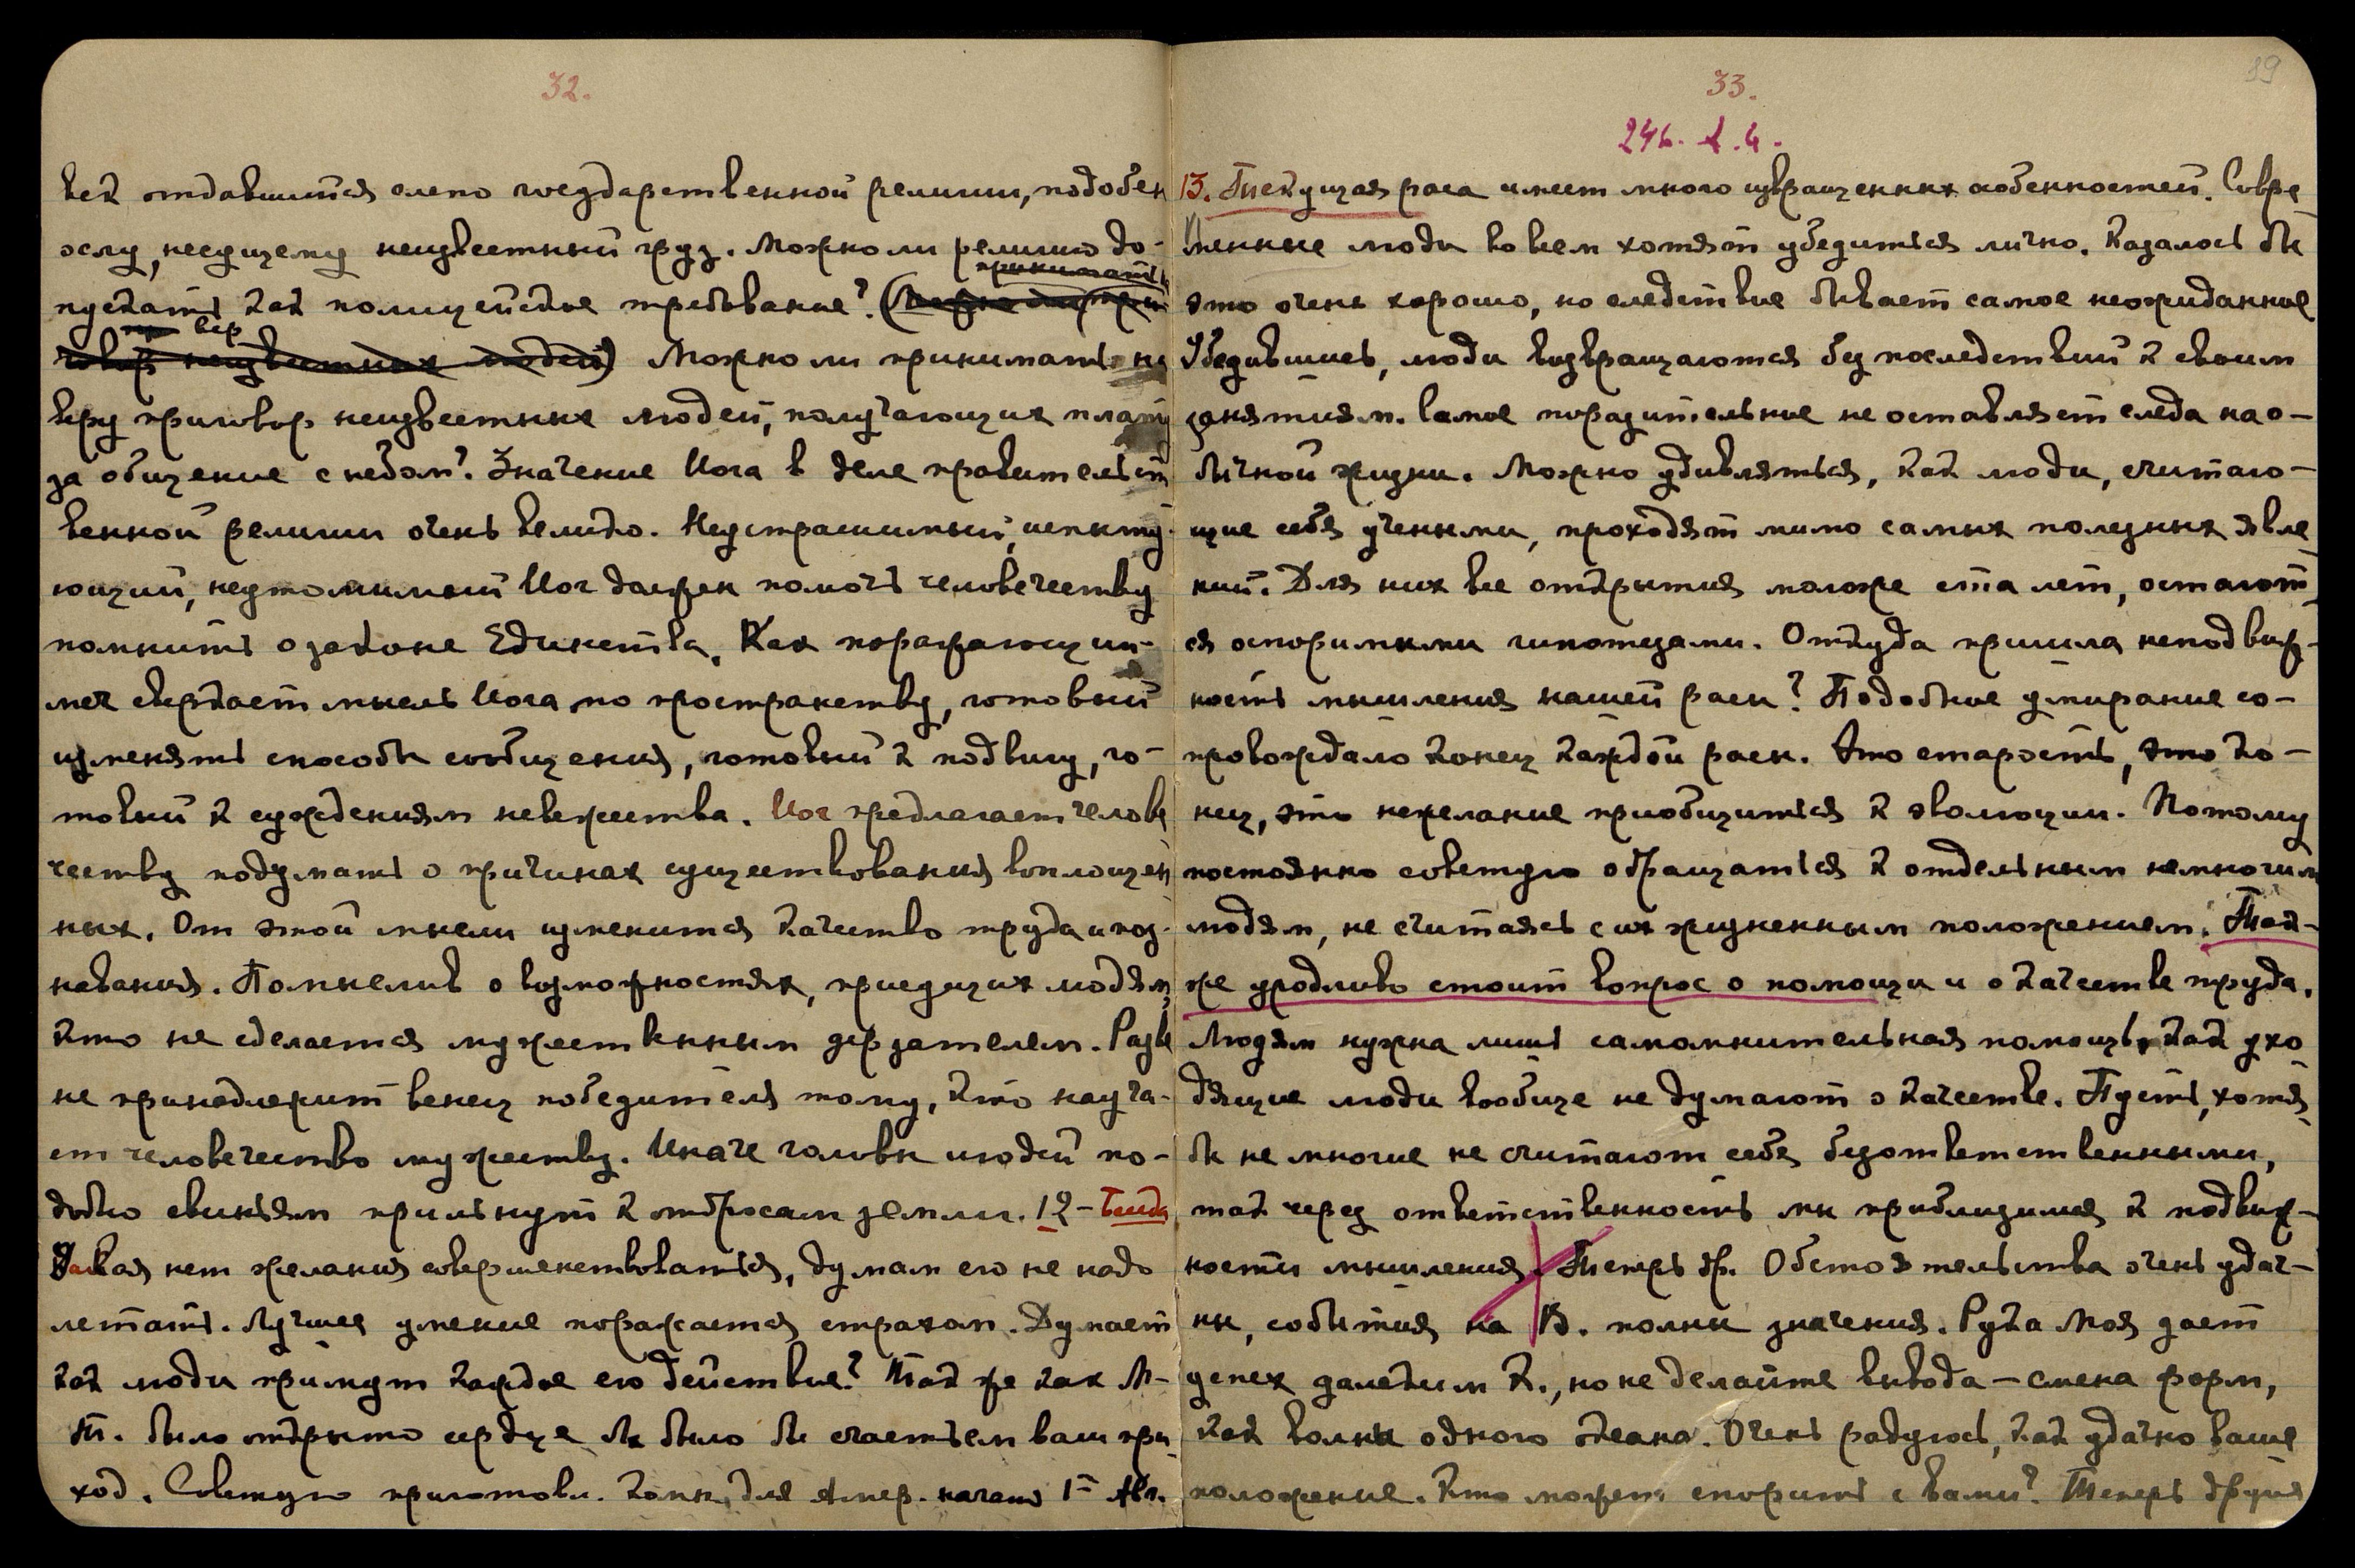 32.
век отдавшийся слепо государственной религии, подобен
ослу, несущему неизвестный груз. Можно ли религию до-
принимать
пускать как полицейское требование? (Можно ли при
вер
говор неизвестных людей) Можно ли принимать на
веру приговор неизвестных людей, получающих плату
за общение с небом? Значение Йога в деле правительст
венной религии очень велико. Неустрашимый, испыту-
ющий, неутомимый Йог должен помочь человечеству
помнить о законе Единства. Как поражающий
меч сверкает мысль Йога по пространству, готовый
изменять способы сообщения, готовый к подвигу, го-
товый к суждениям невежества. Йог предлагает челове
честву подумать о причинах существования воплощен
ных. От этой мысли изменится качество труда и поз-
навания. Помыслив о возможностях, присущих людям,
кто не сделается мужественным дерзателем. Разве
не принадлежит венец победителя тому, кто науча-
ет человечество мужеству. Иначе головы людей по-
добно свиньям прильнут к отбросам земли. 12 –
нет желания совершенствоваться, думам его не надо
летать. Лучшее умение поражается страхом. Думает
как люди примут каждое его действие? Так же как М-
Т. было открыто сердце Бы было бы счастьем ваш при
ход. Советую приготовл. для Амер. начать 1-е Авг.
33.
89
246. A.Й.
13. Текущая раса имеет много извращенных особенностей. Совре
менные люди во всем хотят убедиться лично. Казалось бы
это очень хорошо, но следствие бывает самое неожиданное
Убедившись, люди возвращаются без последствий к своим
занятиям. Самое поразительное не оставляет следа на о-
бычной жизни. Можно удивляться, как люди, считаю-
щие себя учеными, проходят мимо самых полезных явле
ний. Для них все открытия моложе ста лет, остают
ся оспоримыми гипотезами. Откуда пришла неподвиж-
ность мышления нашей расы? Подобное умирание со-
провождало конец каждой расы. Это старость, это ко-
нец, это нежелание приобщиться к эволюции. Потому
постоянно советую обращаться к отдельным немногим
людям, не считаясь с их жизненным положением. Так-
же уродливо стоит вопрос о помощи и о качестве труда.
Людям нужна лишь самомнительная помощь, как ухо
дящие люди вообще не думают о качестве. Пусть, хотя
бы не многие не считают себя безответственными,
так через ответственность мы приблизимся к подвиж-
ности мышления. Теперь др. Обстоятельства очень удач-
ны, события на В. полны значения. Рука Моя дает
успех далеким К., но не делайте вывода – смена форм,
как волны одного океана. Очень радуюсь, как удачно ваше
положение. Кто может спорить с вами? Теперь другое